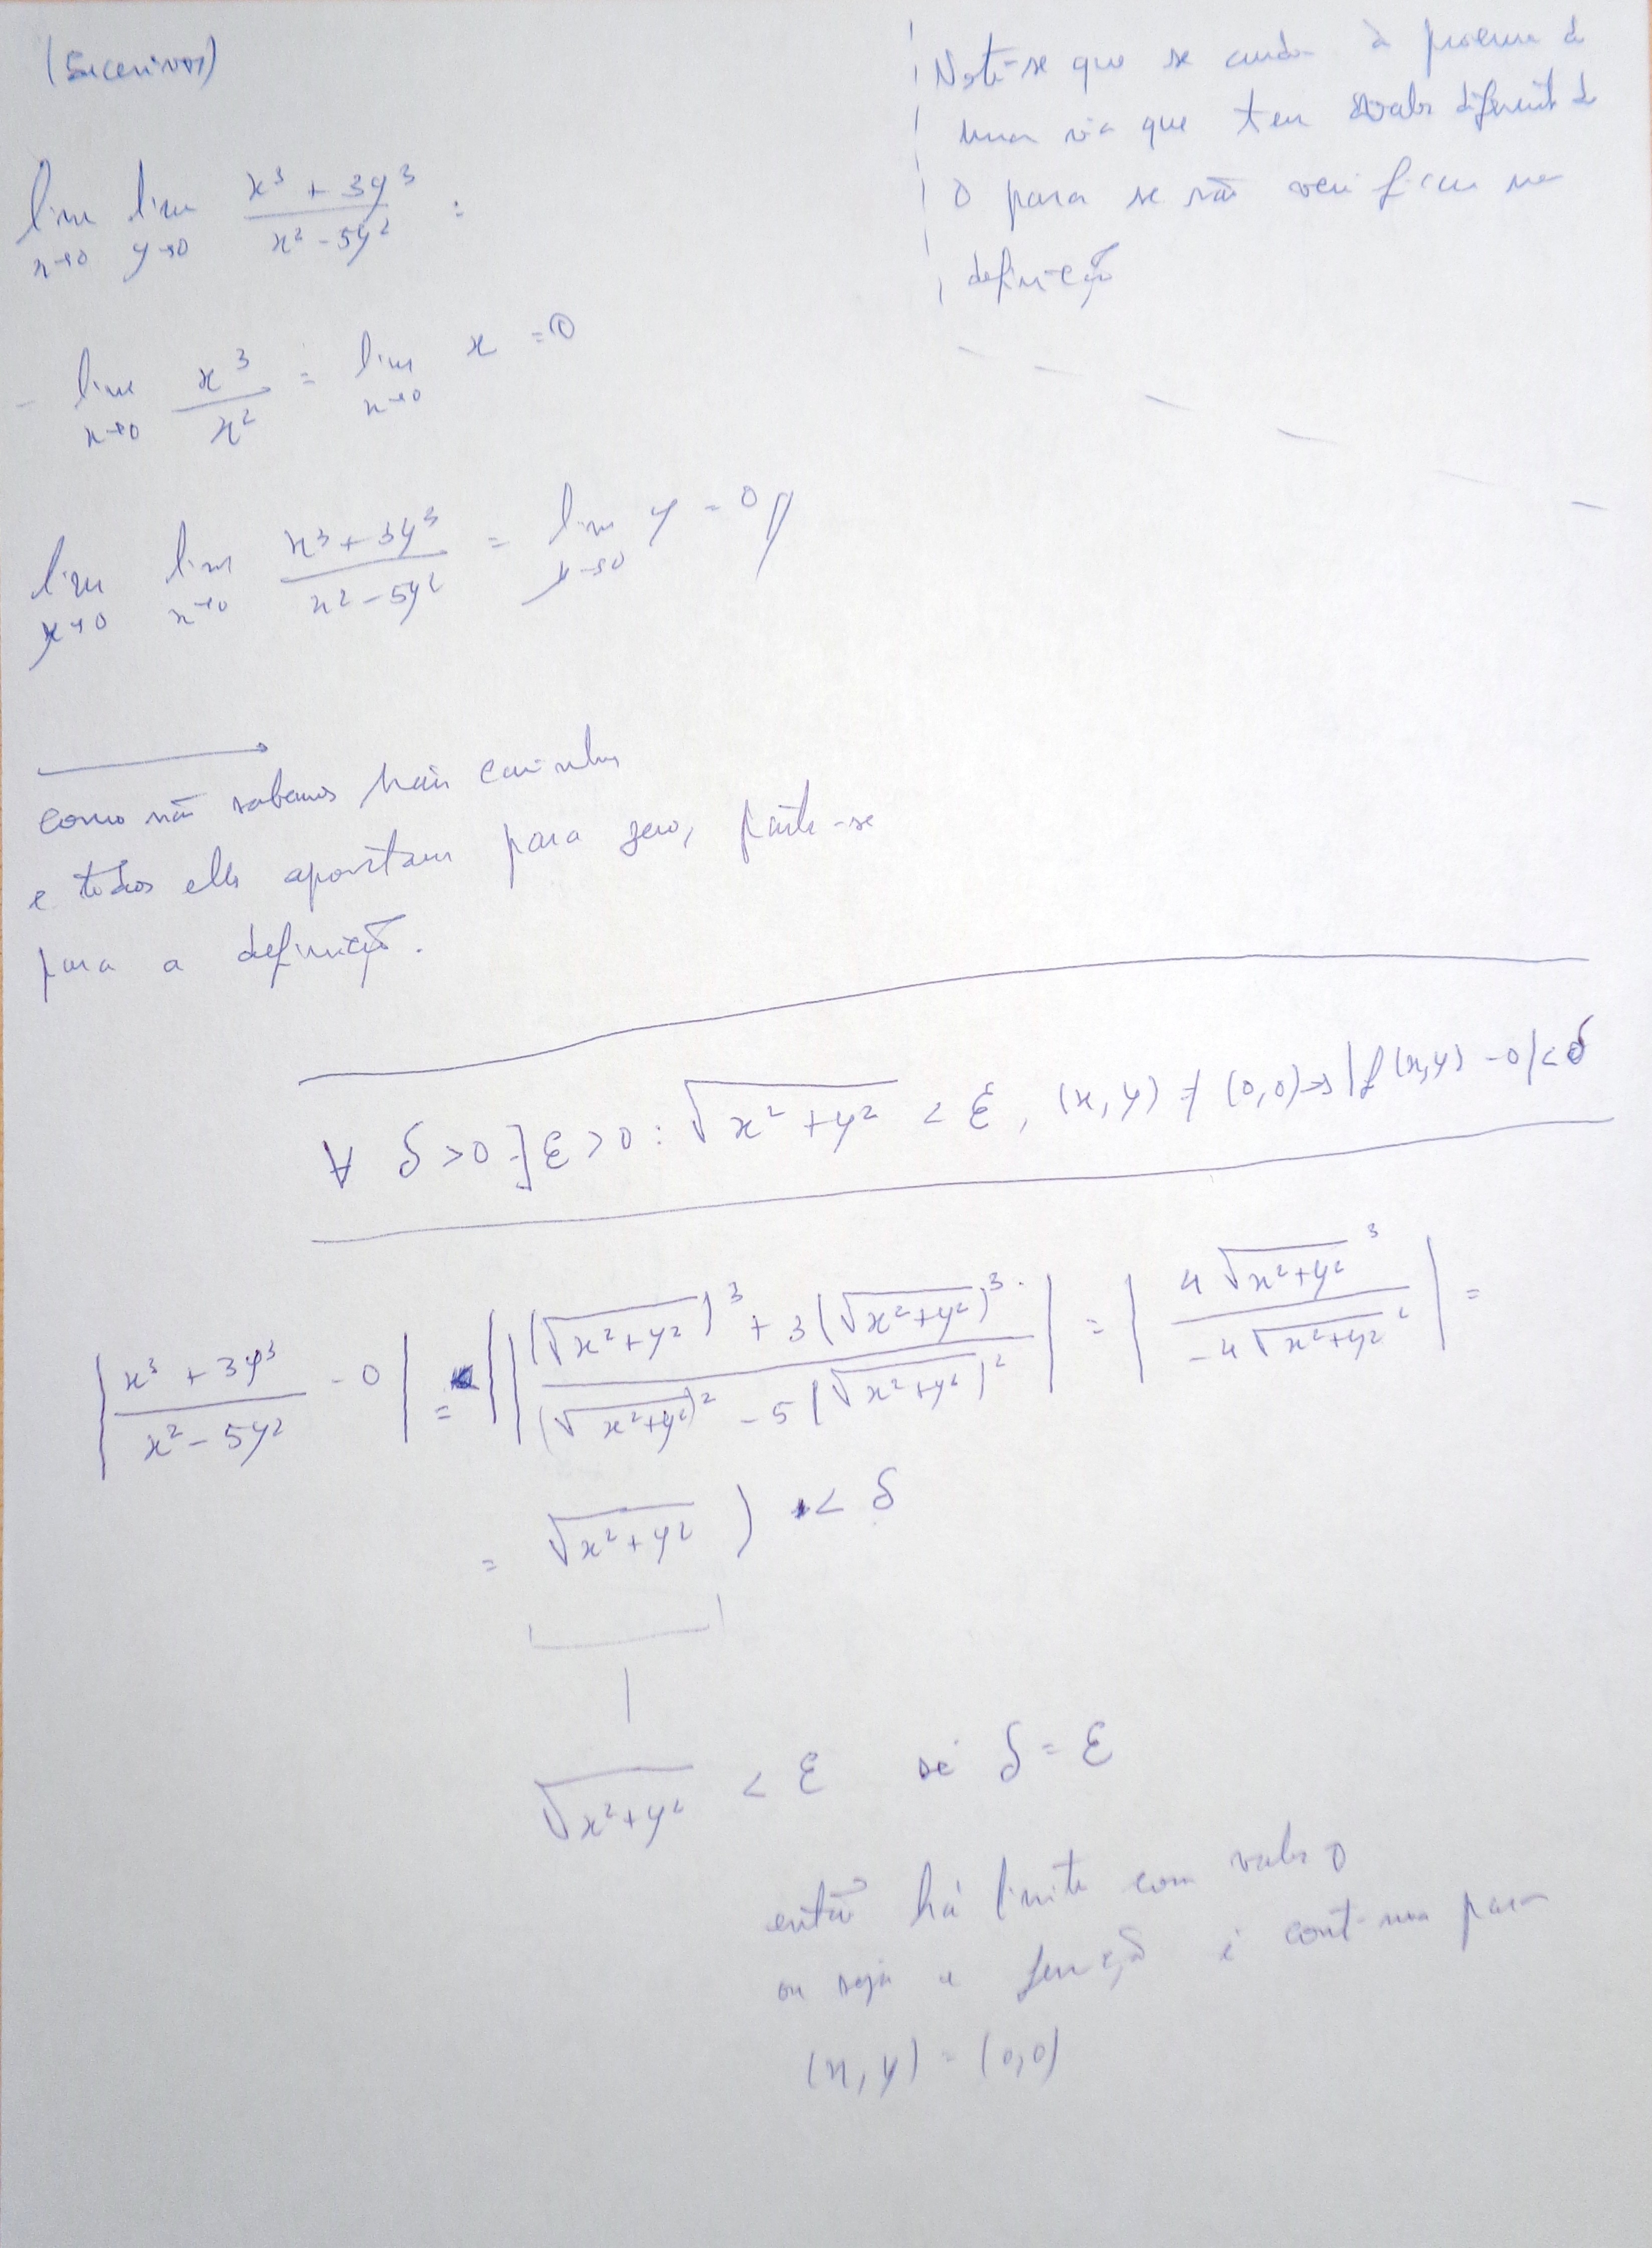 (Sucessivos)
lim x→0 lim y→0 (x³ + 3y³)/(x² - 5y²) =
= lim x→0 x³/x² = lim x→0 x = 0
lim y→0 lim x→0 (x³ + 3y³)/(x² - 5y²) = lim y→0 y = 0 //
Note-se que se anda à procura de
uma via que tem valor diferente de
0 para se não verificar na
definição
como não sabemos mais caminhos
e todos eles apontam para zero, parte-se
para a definição.
∀ δ>0 ∃ ε>0 : √(x² + y²) < ε, (x, y) ≠ (0,0) → |f(x,y) - 0| < δ
|(x³ + 3y³)/(x² - 5y²) - 0| = ||((√(x² + y²))³ + 3(√(x² + y²))³)/((√(x² + y²))² - 5(√(x² + y²))²)| = |(4√(x² + y²)³)/(-4√(x² + y²)²)| =
= √(x² + y²) ) < δ
√(x² + y²) < ε se δ = ε
então há limite com valor 0
ou seja a função é contínua para
(x, y) = (0,0)